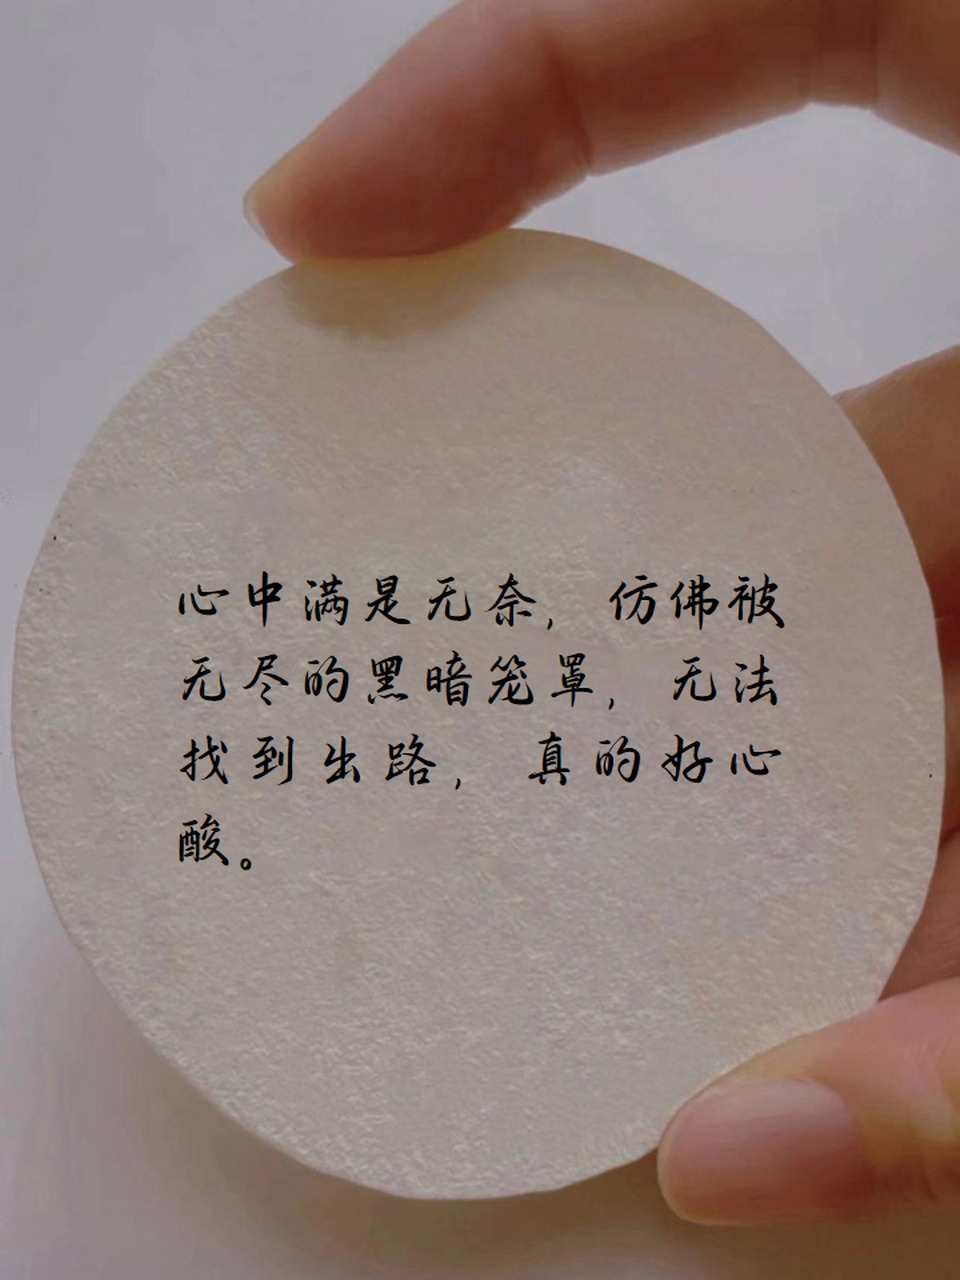 心中满是无奈，仿佛被
无尽的黑暗笼罩，无法
找到出路，真的好心
酸。